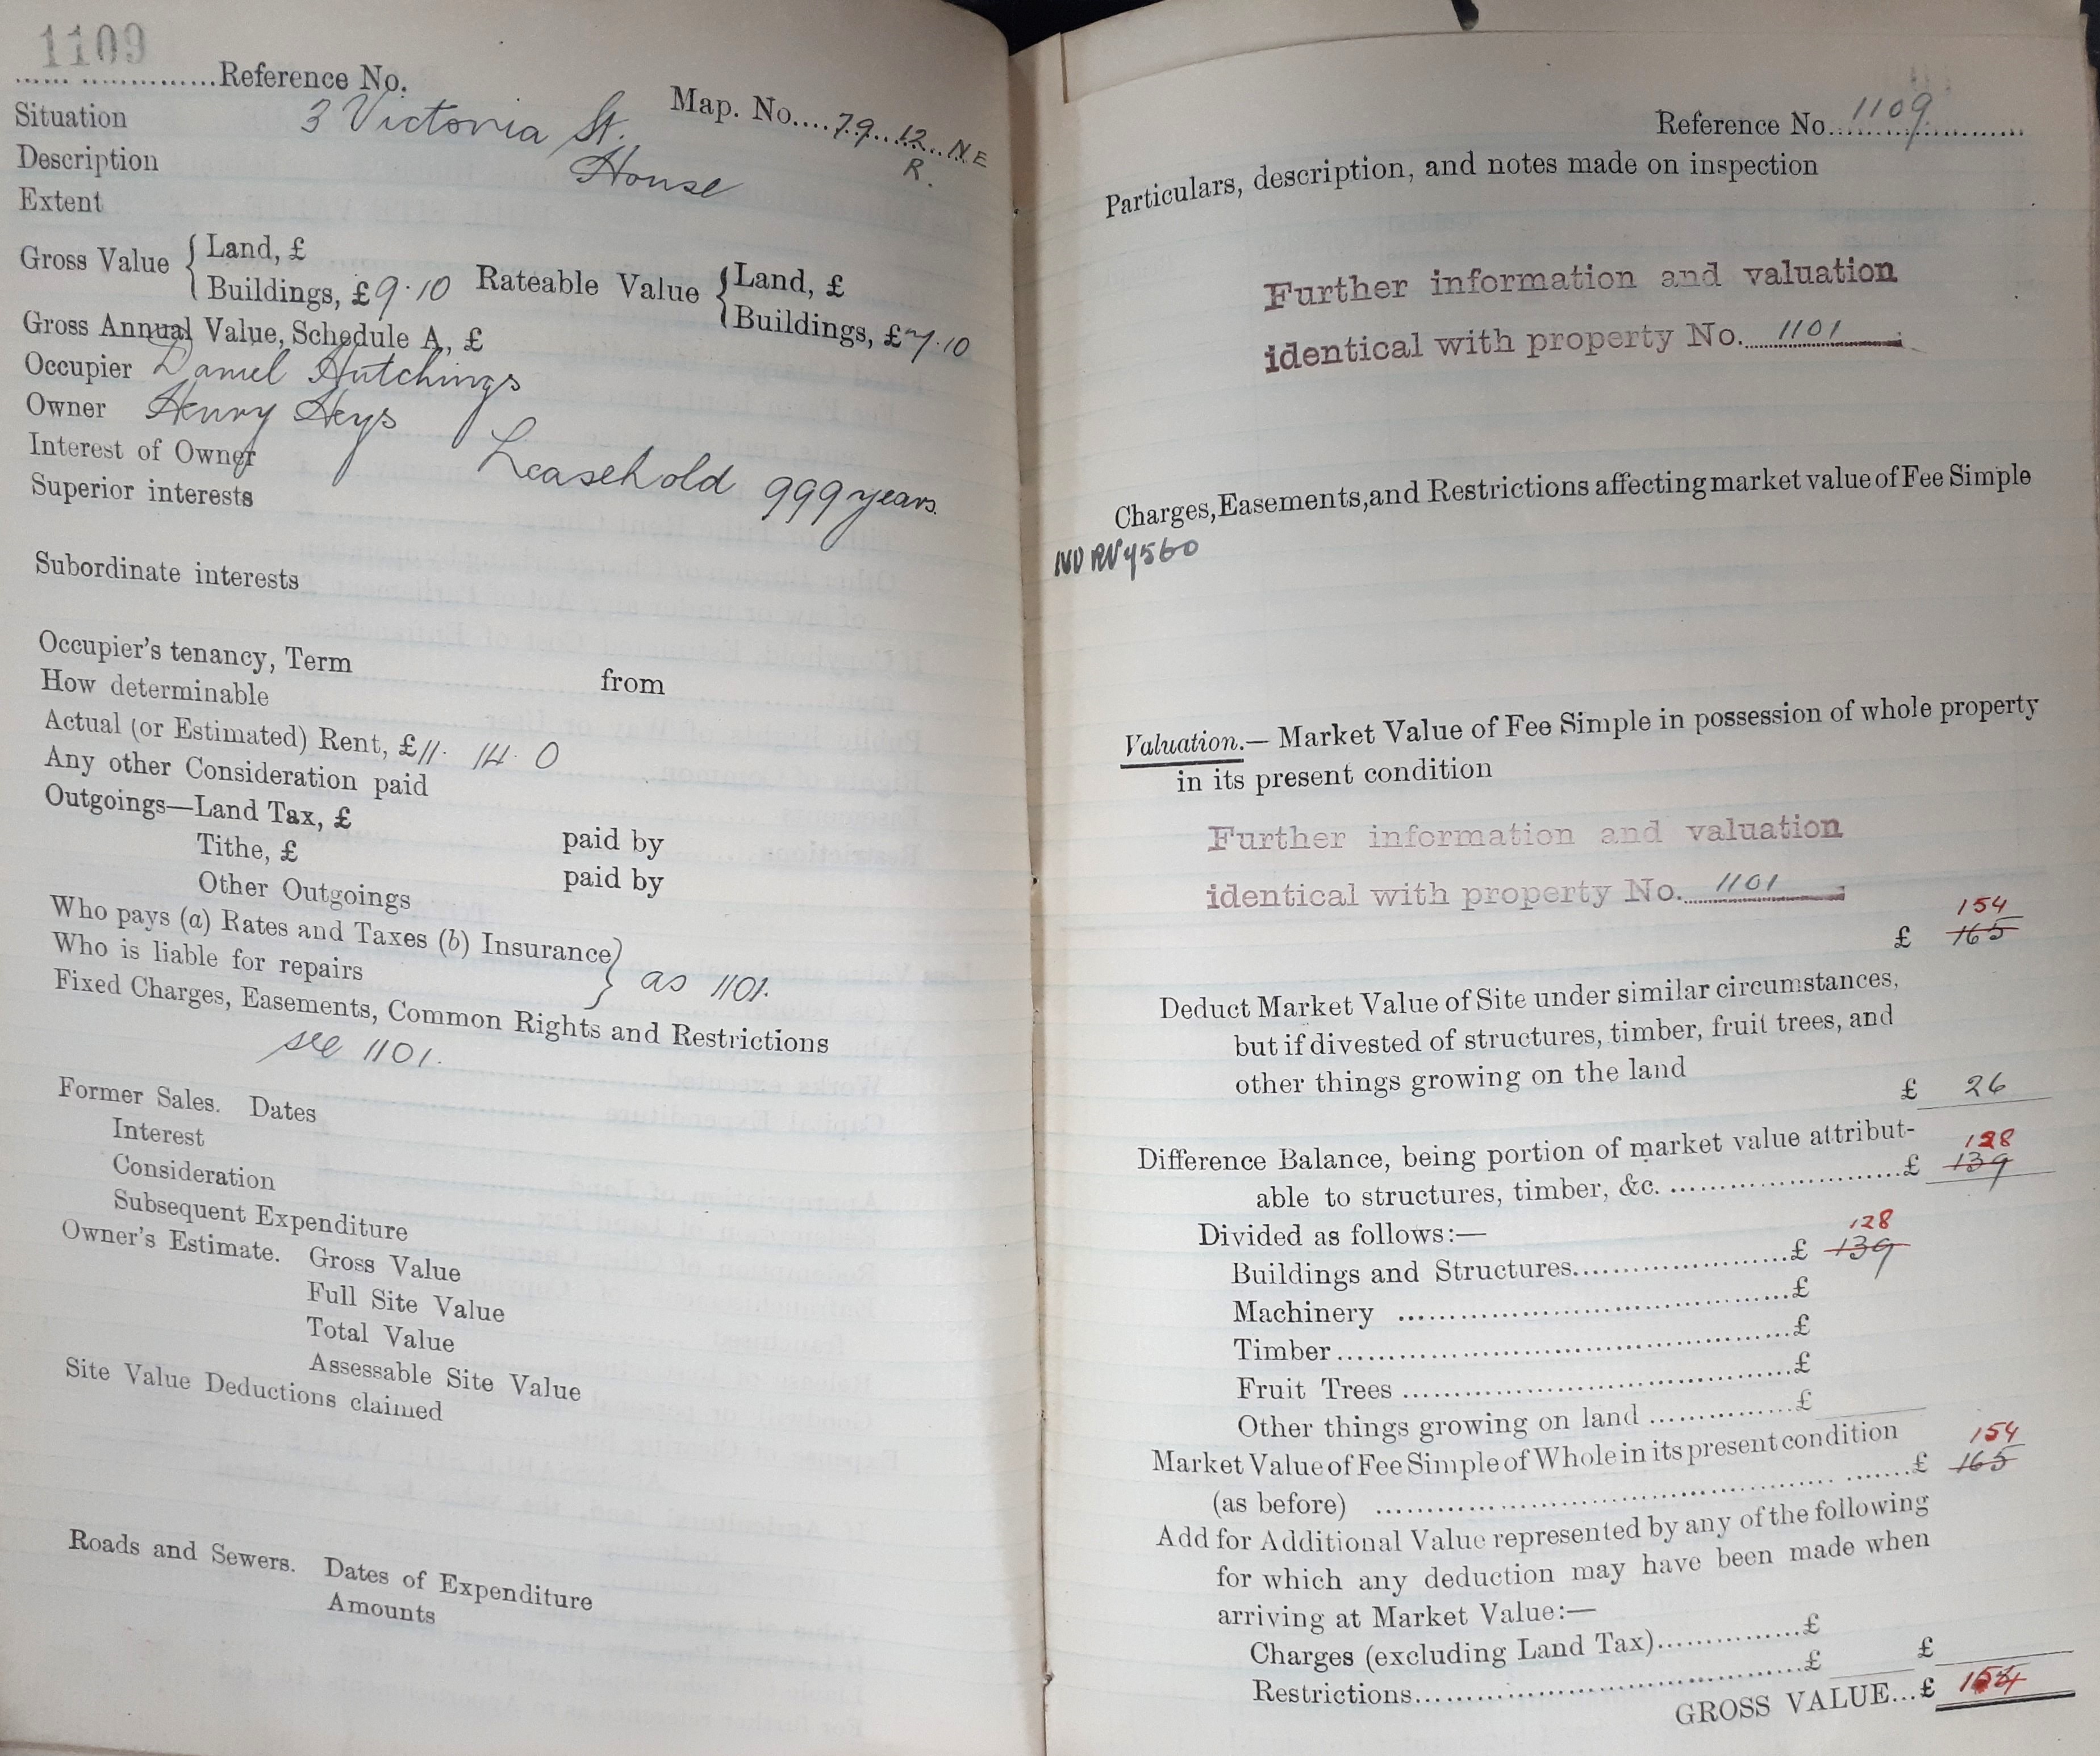 1109
Reference No.
Map. No. 79 12 NE
R.
Situation 3 Victoria St.
Description House
Extent
Gross Value { Land, £
Buildings, £ 9·10 Rateable Value { Land, £
Buildings, £ 7·10
Gross Annual Value, Schedule A, £
Occupier Daniel Hutchings
Owner Henry Heys
Interest of Owner Leasehold 999 years.
Superior interests
Subordinate interests
Occupier's tenancy, Term from
How determinable
Actual (or Estimated) Rent, £ 11. 14. 0
Any other Consideration paid
Outgoings—Land Tax, £ paid by
Tithe, £ paid by
Other Outgoings
Who pays (a) Rates and Taxes (b) Insurance }
Who is liable for repairs } as 1101.
Fixed Charges, Easements, Common Rights and Restrictions
see 1101.
Former Sales. Dates
Interest
Consideration
Subsequent Expenditure
Owner's Estimate. Gross Value
Full Site Value
Total Value
Assessable Site Value
Site Value Deductions claimed
Roads and Sewers. Dates of Expenditure
Amounts
Reference No. 1109
Particulars, description, and notes made on inspection
Further information and valuation
identical with property No. 1101
Charges, Easements, and Restrictions affecting market value of Fee Simple
Valuation.— Market Value of Fee Simple in possession of whole property
in its present condition
Further information and valuation
identical with property No. 1101
154
£ 165
Deduct Market Value of Site under similar circumstances,
but if divested of structures, timber, fruit trees, and
other things growing on the land
£ 26
Difference Balance, being portion of market value attribut-
128
able to structures, timber, &c. £ 139
Divided as follows:—
128
Buildings and Structures £ 139
Machinery £
Timber £
Fruit Trees £
Other things growing on land £
Market Value of Fee Simple of Whole in its present condition
154
(as before) £ 165
Add for Additional Value represented by any of the following
for which any deduction may have been made when
arriving at Market Value:—
Charges (excluding Land Tax) £
Restrictions £ £
GROSS VALUE... £ 154